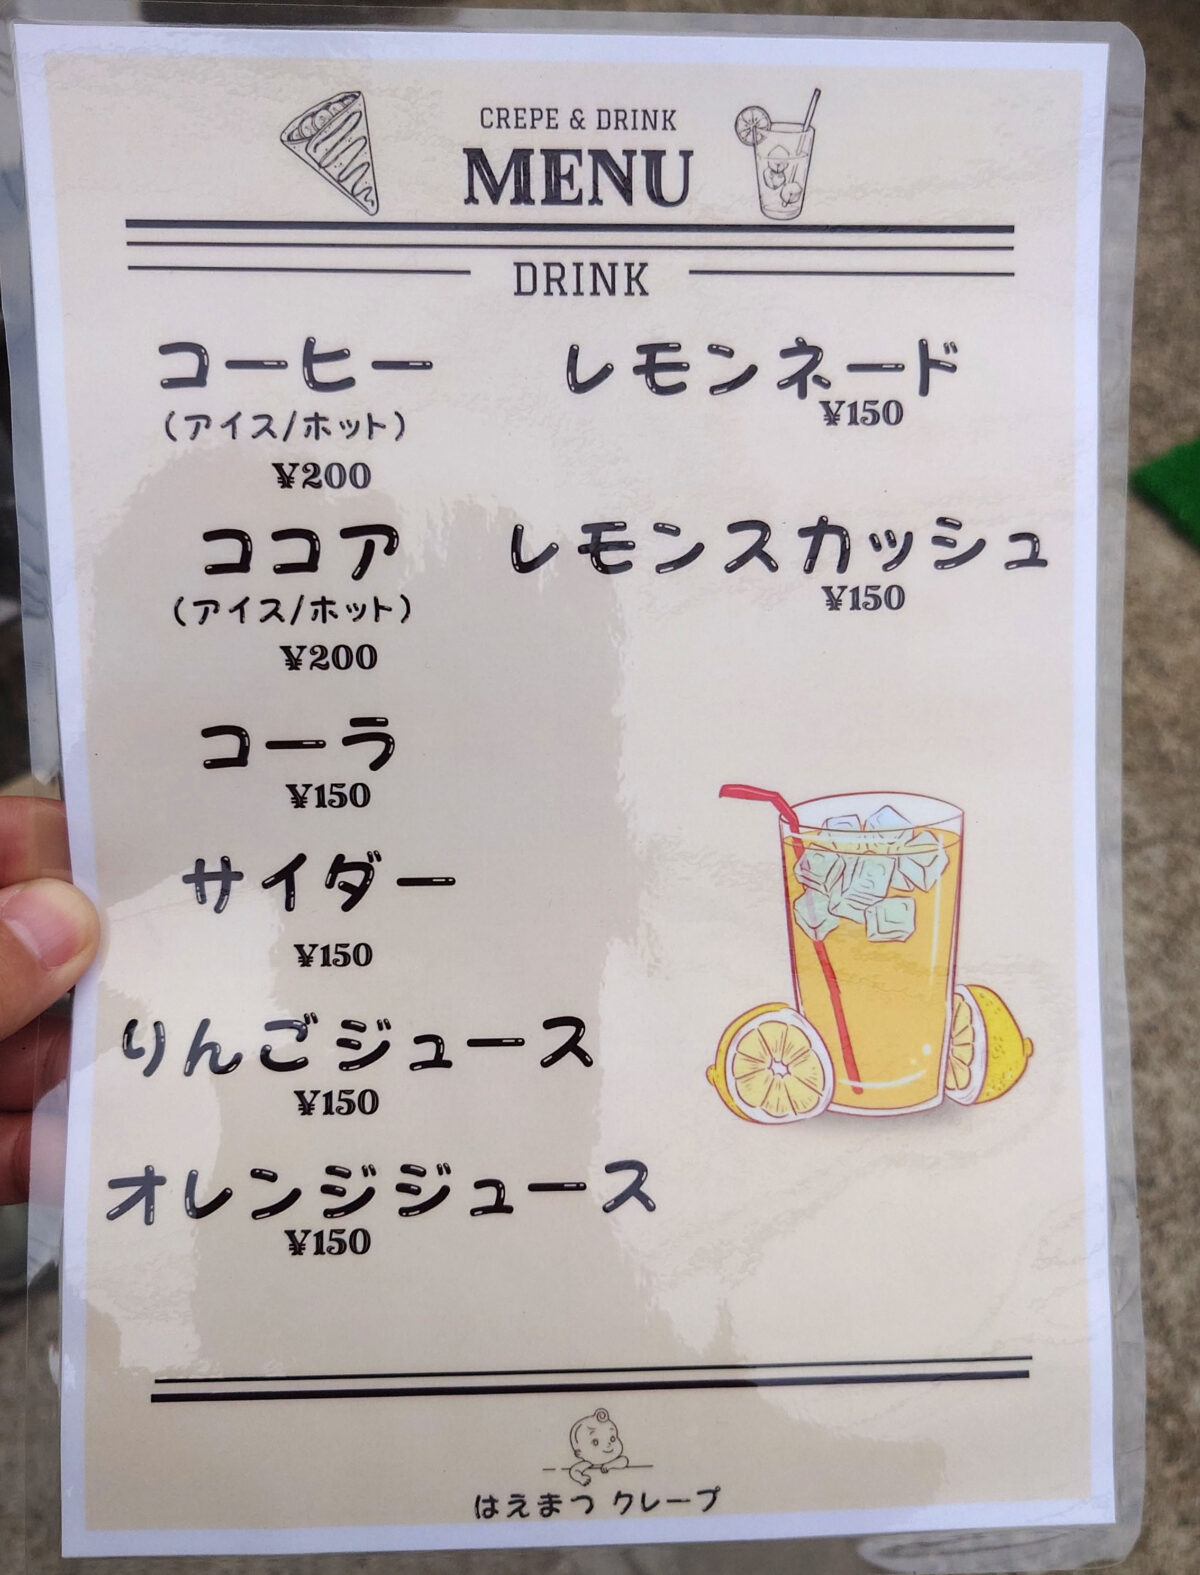 CREPE & DRINK
MENU
DRINK
コーヒー
(アイス/ホット)
¥200
ココア
(アイス/ホット)
¥200
コーラ
¥150
サイダー
¥150
りんごジュース
¥150
オレンジジュース
¥150
レモンネード
¥150
レモンスカッシュ
¥150
はえまつ クレープ